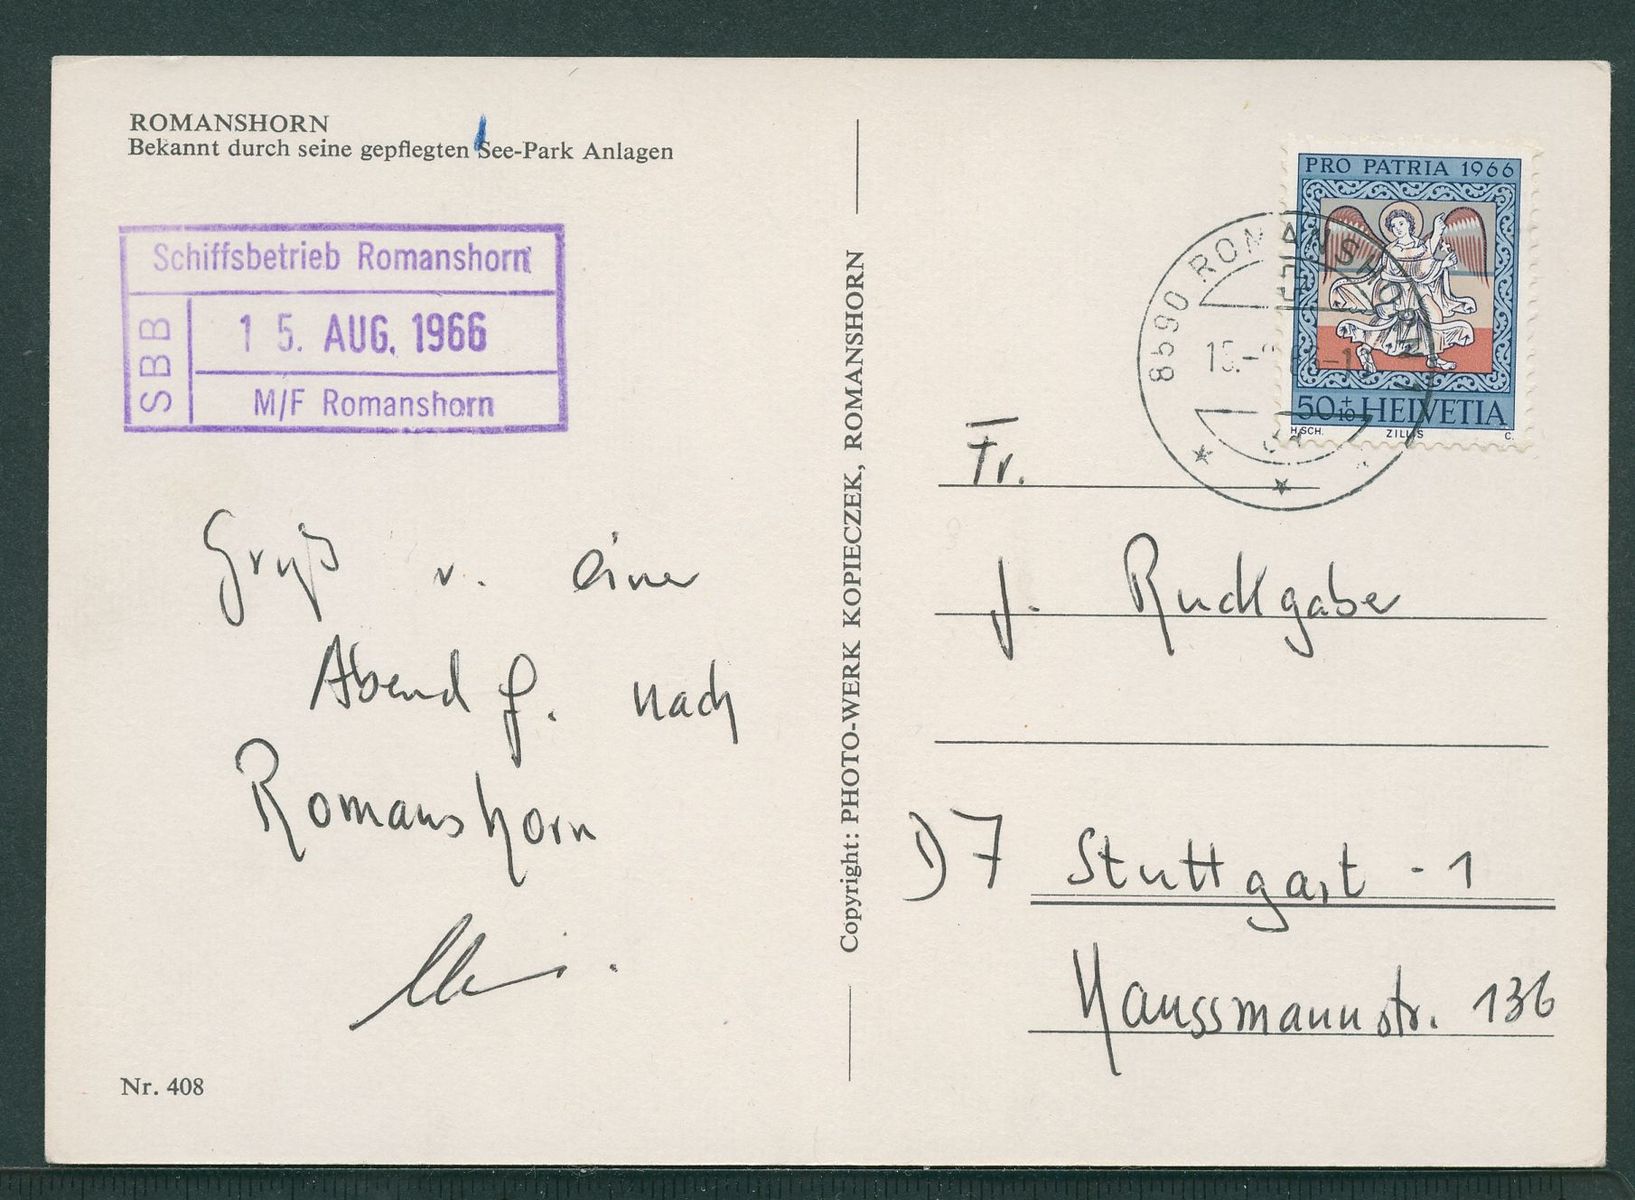 ROMANSHORN
Bekannt durch seine gepflegten See-Park Anlagen
Schiffsbetrieb Romanshorn
SBB
15. AUG. 1966
M/F Romanshorn
Gruß v. einer
Abend f. nach
Romanshorn
Nr. 408
Copyright: PHOTO-WERK KOPIECZEK, ROMANSHORN
PRO PATRIA 1966
50+10 HELVETIA
H.SCH. ZILLIS C.
8590 ROMANSHORN
Fr.
J. Ruckgaber
D7 Stuttgart - 1
Haussmannstr. 136